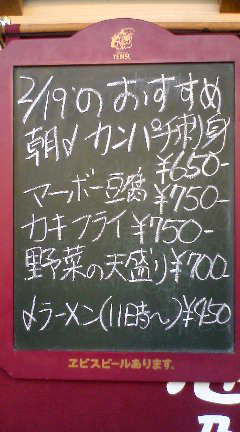 YEBISU
2/19のおすすめ
朝〆カンパチ刺身
¥650-
マーボー豆腐 ¥750-
カキフライ ¥750-
野菜の天盛り ¥700
〆ラーメン(11時〜) ¥450
ヱビスビールあります。